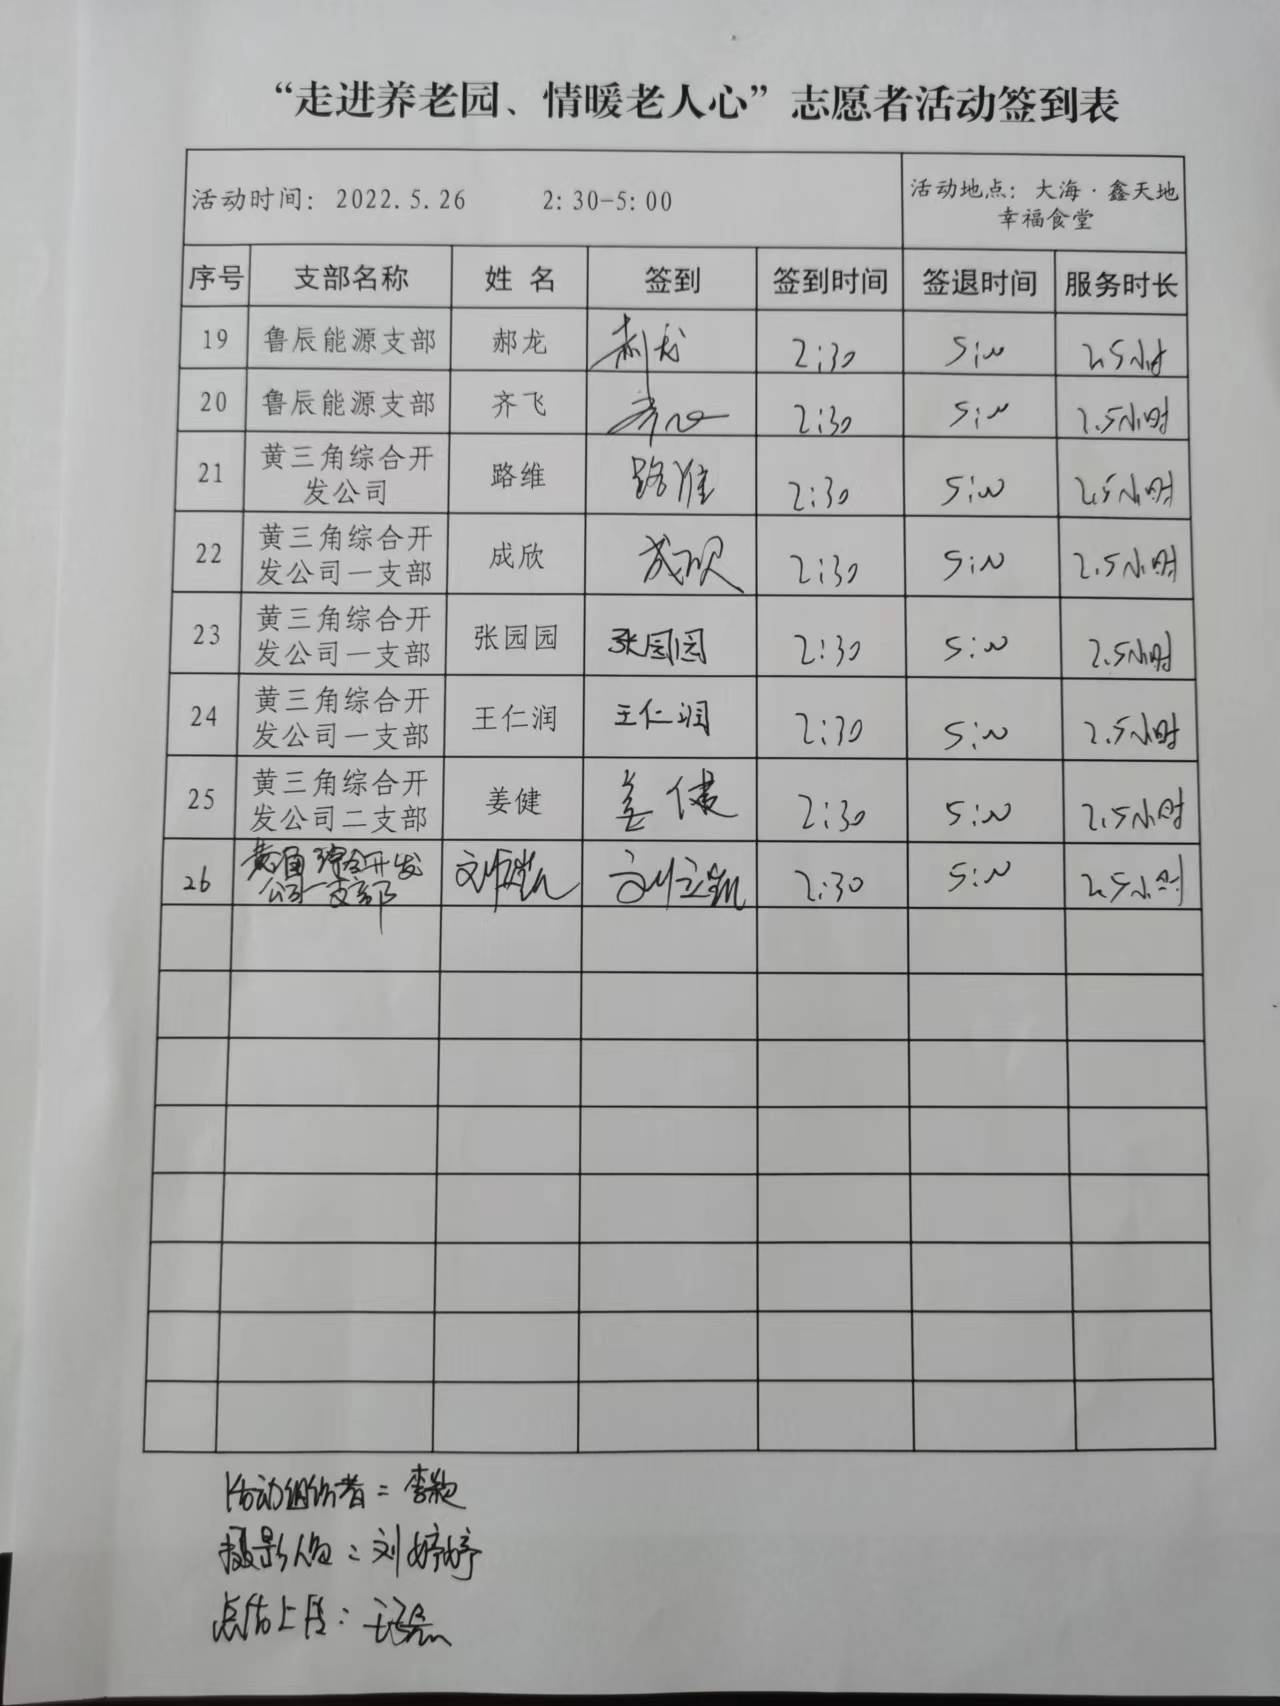 “走进养老园、情暖老人心”志愿者活动签到表
活动时间: 2022.5.26 2:30-5:00
活动地点: 大海·鑫天地
幸福食堂
序号 支部名称 姓 名 签到 签到时间 签退时间 服务时长
19 鲁辰能源支部 郝龙 郝龙 2:30 5:00 2.5小时
20 鲁辰能源支部 齐飞 齐飞 2:30 5:00 2.5小时
21 黄三角综合开
发公司 路维 路维 2:30 5:00 2.5小时
22 黄三角综合开
发公司一支部 成欣 成欣 2:30 5:00 2.5小时
23 黄三角综合开
发公司一支部 张园园 张园园 2:30 5:00 2.5小时
24 黄三角综合开
发公司一支部 王仁润 王仁润 2:30 5:00 2.5小时
25 黄三角综合开
发公司二支部 姜健 姜健 2:30 5:00 2.5小时
26 黄三角综合开发
公司一支部 刘立凯 2:30 5:00 2.5小时
活动组织者: 李颖
摄影人员: 刘婷婷
总结上传: